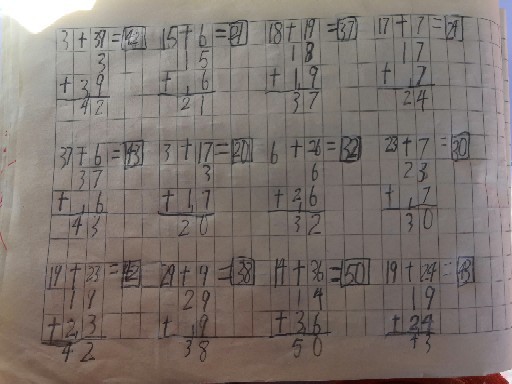 3+39=42 15+6=21 18+19=37 17+7=24
3 15 18 17
+39 +6 +19 +7
42 21 37 24
37+6=43 3+17=20 6+26=32 23+7=30
37 3 6 23
+6 +17 +26 +7
43 20 32 30
19+23=42 29+9=38 14+36=50 19+24=43
19 29 14 19
+23 +9 +36 +24
42 38 50 43